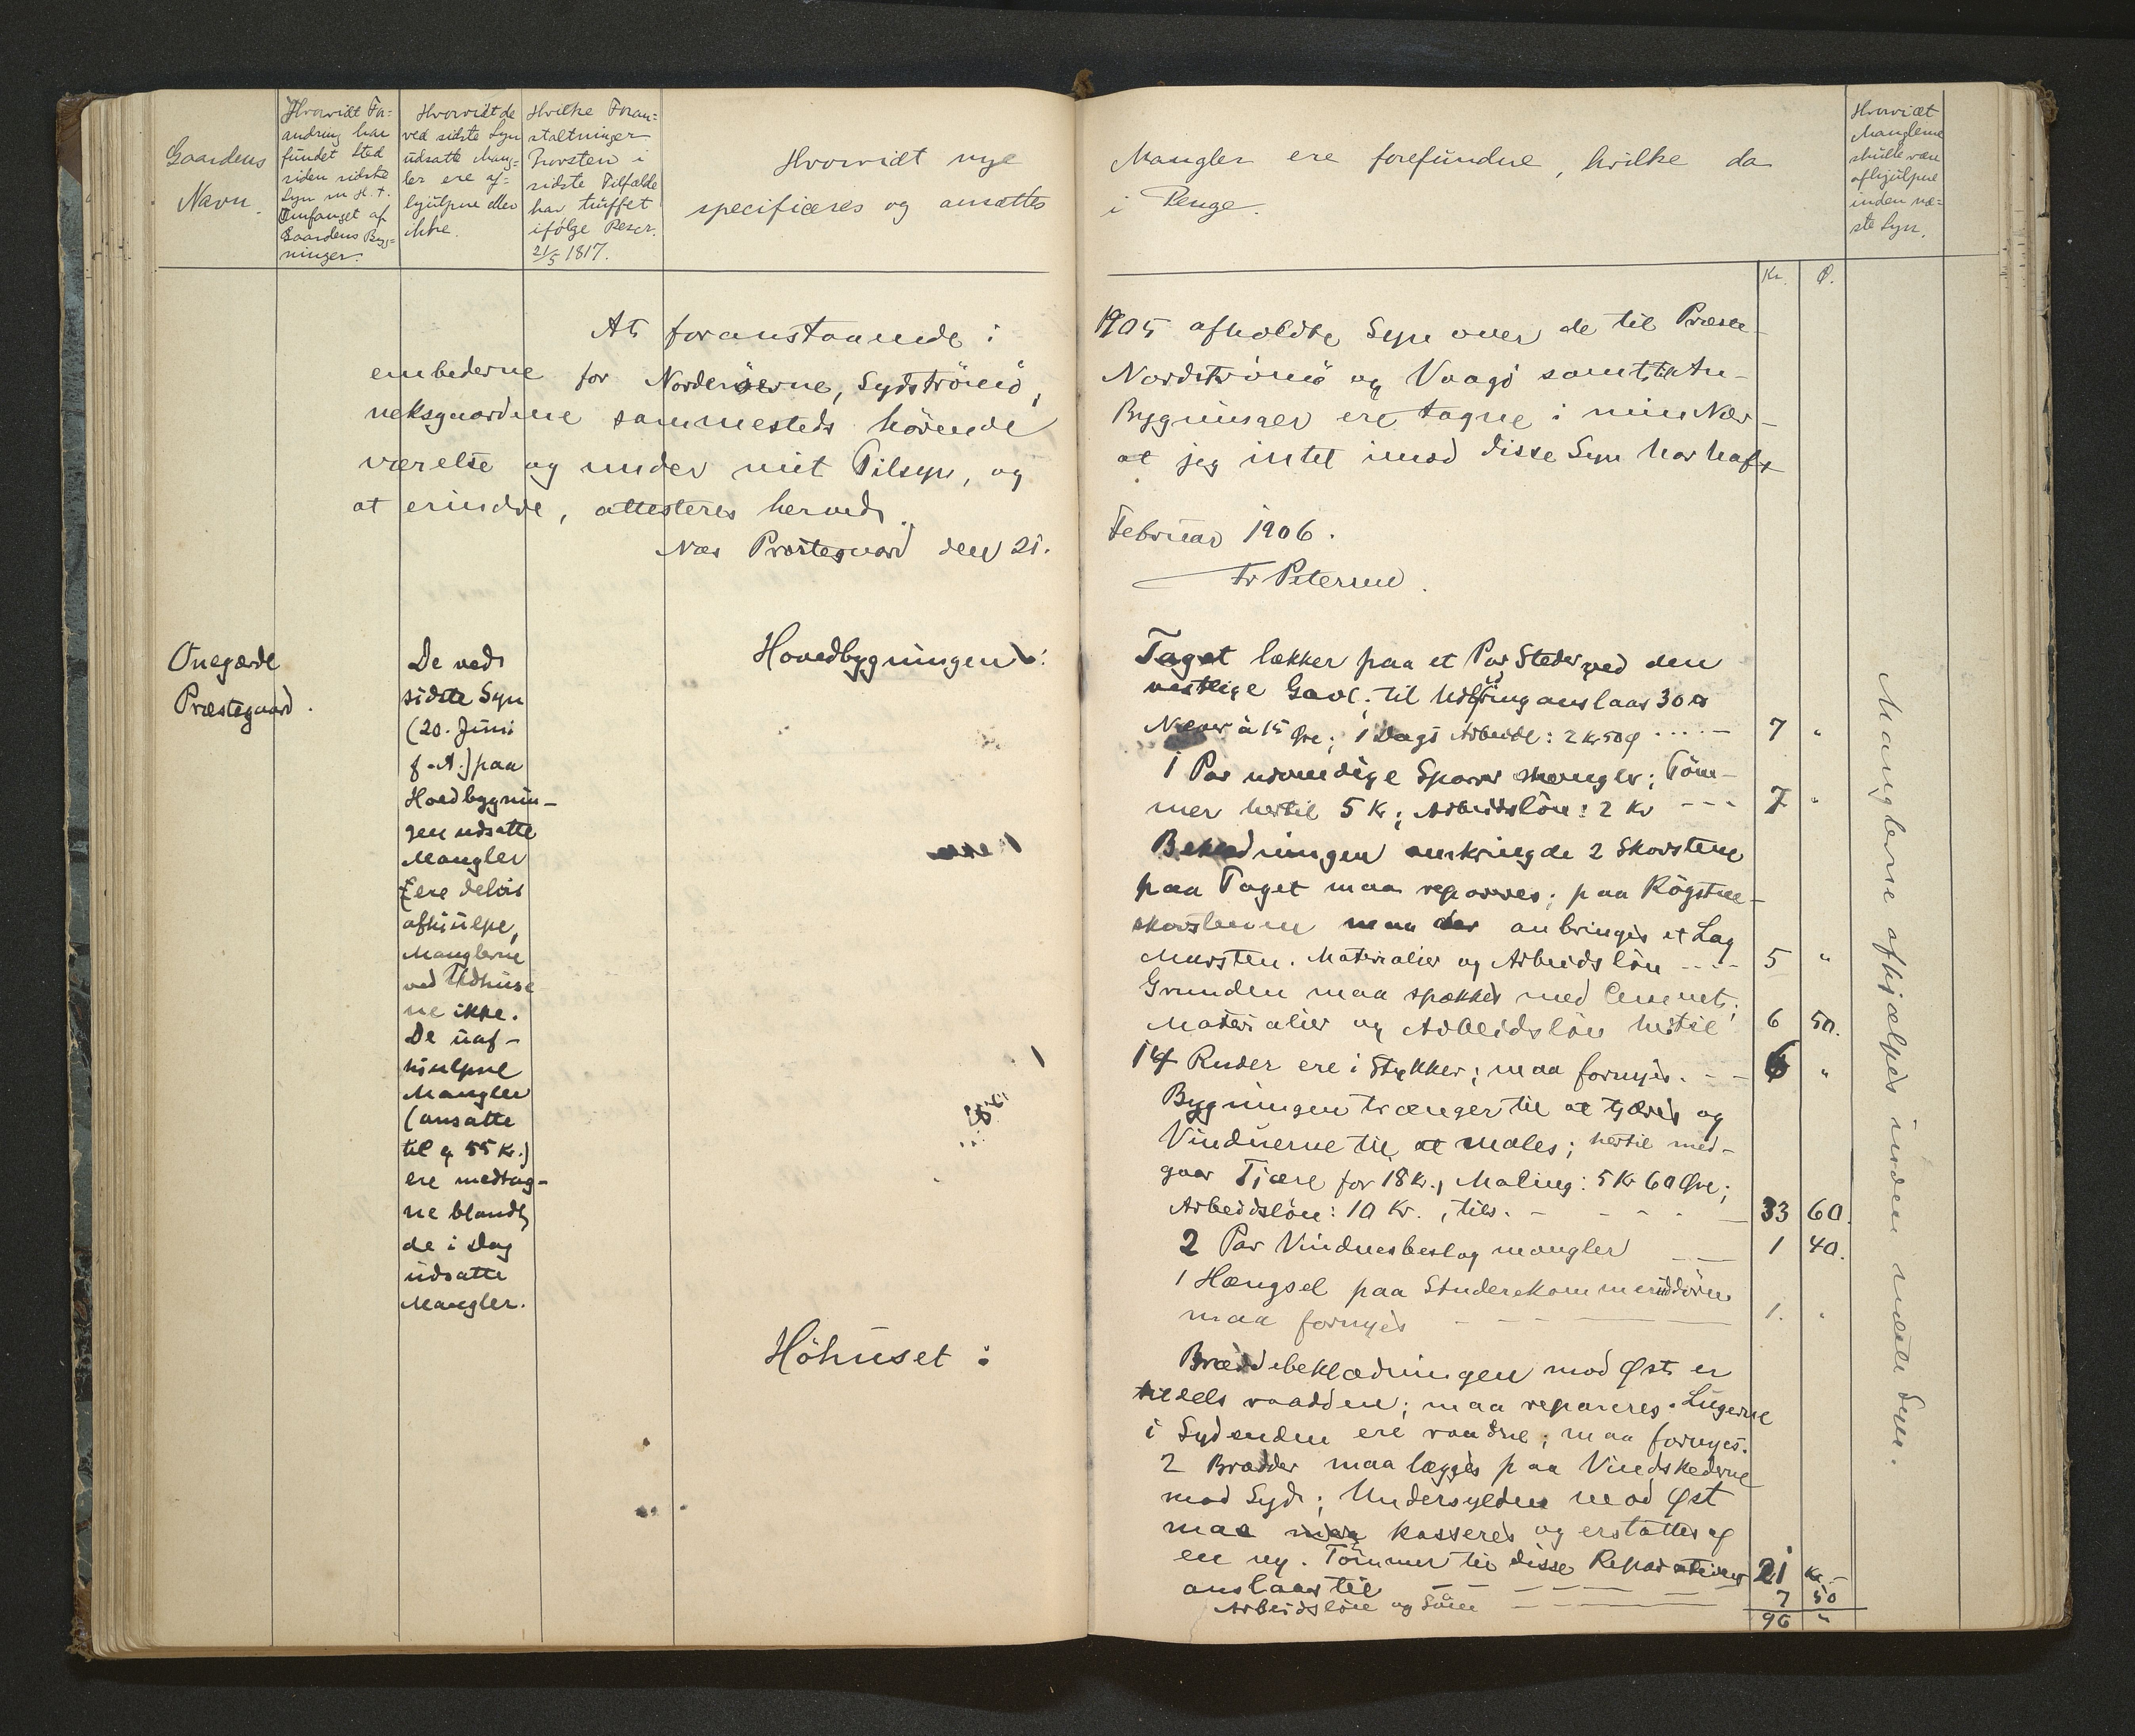 Gaardens
Navn.
Hvorvidt For-
andring har
fundet Sted
siden sidste
Syn m. H. t.
Omfanget af
Gaardens Byg-
ninger.
Hvorvidt de
ved sidste Syn
udsatte Mang-
ler ere af-
hjulpne eller
ikke.
Hvilke Foran-
staltninger
Provsten i
sidste Tilfælde
har truffet
ifölge Reser.
21/5 1817.
Hvorvidt nye Mangler ere forefundne, hvilke da
specificeres og ansættes i Penge.
Hvorvidt
Manglerne
skulle være
afhjulpne
inden næ-
ste Syn.
Kr. Ø.
At foranstaaende i 1905 afholdte Syn over de til Præste-
embederne for Norderöerne, Sydströmö, Nordströmö og Vaagö samt til An-
neksgaardene sammesteds hörende Bygninger ere tagne i min Nær-
værelse og under mit Tilsyn, og at jeg intet imod disse Syn har haft
at erindre, attesteres herved.
Næs Provstegaard den 21. Februar 1906.
Fr Petersen.
Onegærde
Præstegaard.
De ved
sidste Syn
(20. Juni
f. A.) paa
Hoedbygnin-
gen udsatte
Mangler
ere delvis
afhjulpe,
Manglerne
ved Udhuse
ne ikke.
De uaf-
hjulpne
Mangler
(ansatte
til 55 Kr.)
ere medtag-
ne blandt
de i Dag
udsatte
Mangler.
Hovedbygningen:
Taget lækker paa et Par Steder ved den
vestlige Gavl; til Udföring anslaas 30
Næver à 15 Øre; 1 Dags Arbeide: 2 Kr 50 Ø .... - 7 "
1 Par udvendige Sparrer mangler; Töm-
mer hertil 5 Kr; Arbeidslön: 2 Kr - - - 7 "
Beklædningen omkring de 2 Skorstene
paa Taget maa repareres; paa Rögstue-
skorstenen maa der anbringes et Lag
Mursten. Materialier og Arbeidslön - - - - 5 "
Grunden maa spækkes med Cement;
Materialier og Arbeidslön hertil 6 50.
14 Ruder ere i Stykker; maa fornyes. - - 6 "
Bygningen trænger til at tjæres og
Vinduerne til at males; hertil med-
gaar Tjære for 18 Kr., Maling: 5 Kr 60 Øre;
Arbeidslön: 10 Kr., tils. - - - - - 33 60.
2 Par Vinduesbeslag mangler - - 1 40.
1 Hængsel paa Studerekammerdören
maa fornyes - - - - - 1. "
Höhuset:
Bræddebeklædningen mod Øst er
tildels raadden; maa repareres. Lugerne
i Sydenden ere raadne; maa fornyes.
2 Brædder maa lægges paa Vindskederne
mod Syd; Undersylden mod Øst
maa kasseres og erstattes af
en ny. Tömmer til disse Reparationer
anslaas til - - - - - 21 Kr. -
Arbeidslön og Söm - - - 7 50
96 "
Manglerne afhjælpes inden næste Syn.